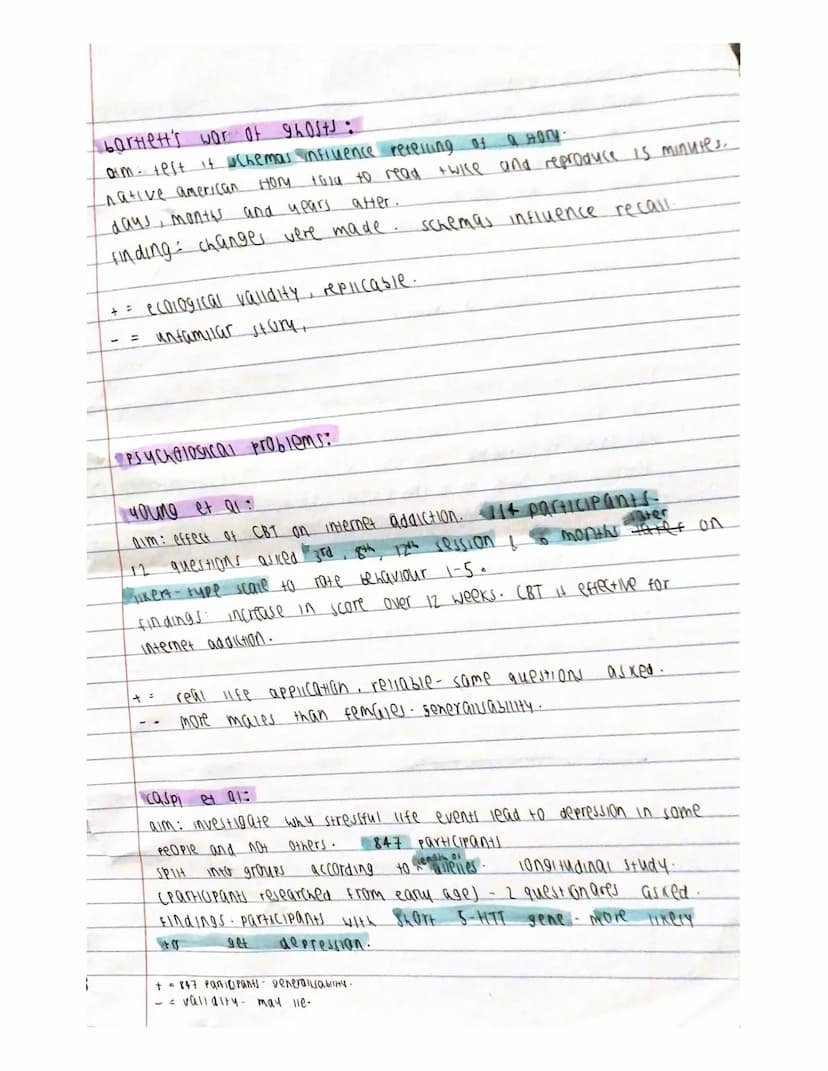 bartlett's war of ghosts:
aim: test if schemas influence retelling of a story.
native american story told to read twice and reproduce 15 minutes,
days, months and years after.
finding: changes were made. schemas influence recall.
+ = ecological validity, replicable.
- = unfamilar story,
psychological problems:
young et al:
aim: effect of CBT on internet addiction. 114 participants.
12 questions asked 3rd, 8th, 12th session & 6 months later on
likert-type scale to rate behaviour 1-5.
findings: increase in score over 12 weeks. CBT is effective for
internet addiction.
+ = real life application, reliable- same questions asked.
- = more males than females - generalisability.
caspi et al:
aim: investigate why stressful life events lead to depression in some
people and not others. 847 participants
split into groups according to length of alleles. longitudinal study.
(participants researched from early age) - 2 questionares asked.
findings. participants with short 5-HTT gene - more likely
to get depression.
+ = 847 participants- generalisability.
- = validity- may lie.